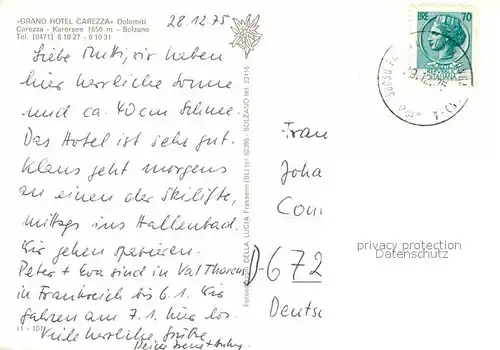 «GRAND HOTEL CAREZZA» Dolomiti
Carezza - Karersee 1650 m - Bolzano
Tel. (0471) 6 10 27 - 6 10 31
28.12.75
LIRE 70
Liebe Mutti, wir haben
hier herrliche Sonne
und ca. 40 cm Schnee.
Das Hotel ist sehr gut.
Klaus geht morgens
an einen der Skilifte,
mittags ins Hallenbad.
Wir gehen spazieren.
Peter + Eva sind in Val Thorens
in Frankreich bis 6.1. Wir
fahren am 7.1. hier los.
Viele herzliche Grüße
(1 - 101)
DELLA LUCIA Frassenè (BL) tel. 62305 - BOLZANO tel. 23116
Frau
Joha
Com
D-672
Deutsc
privacy protection
Datenschutz